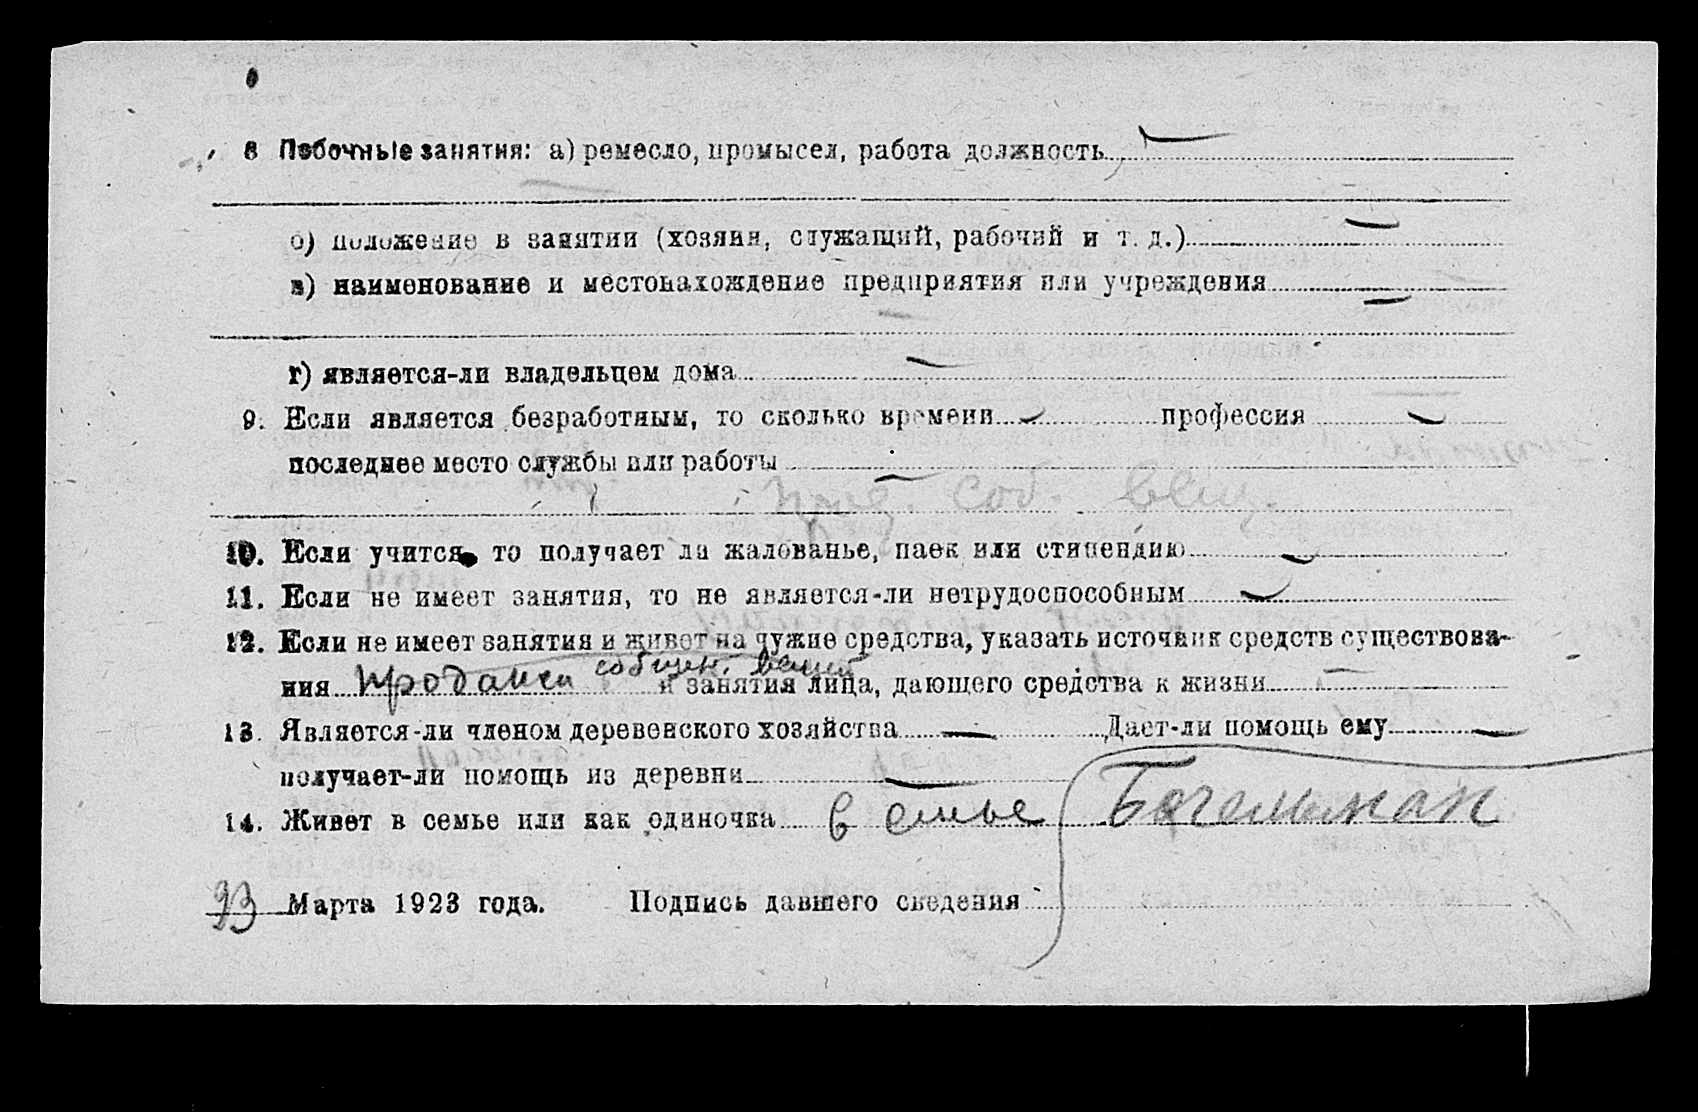 8 Побочные занятия: а) ремесло, промысел, работа должность —
б) положение в занятии (хозяин, служащий, рабочий и т. д.) —
в) наименование и местонахождение предприятия или учреждения —
г) является-ли владельцем дома —
9. Если является безработным, то сколько времени — профессия —
последнее место службы или работы —
прод. соб. вещ.
10. Если учится, то получает ли жалованье, паек или стипендию —
11. Если не имеет занятия, то не является-ли нетрудоспособным —
12. Если не имеет занятия и живет на чужие средства, указать источник средств существова-
ния продажи собствен. вещей и занятия лица, дающего средства к жизни —
13. Является-ли членом деревенского хозяйства — Дает-ли помощь ему —
получает-ли помощь из деревни —
14. Живет в семье или как одиночка в семье Бегельман
Марта 1923 года. Подпись давшего сведения